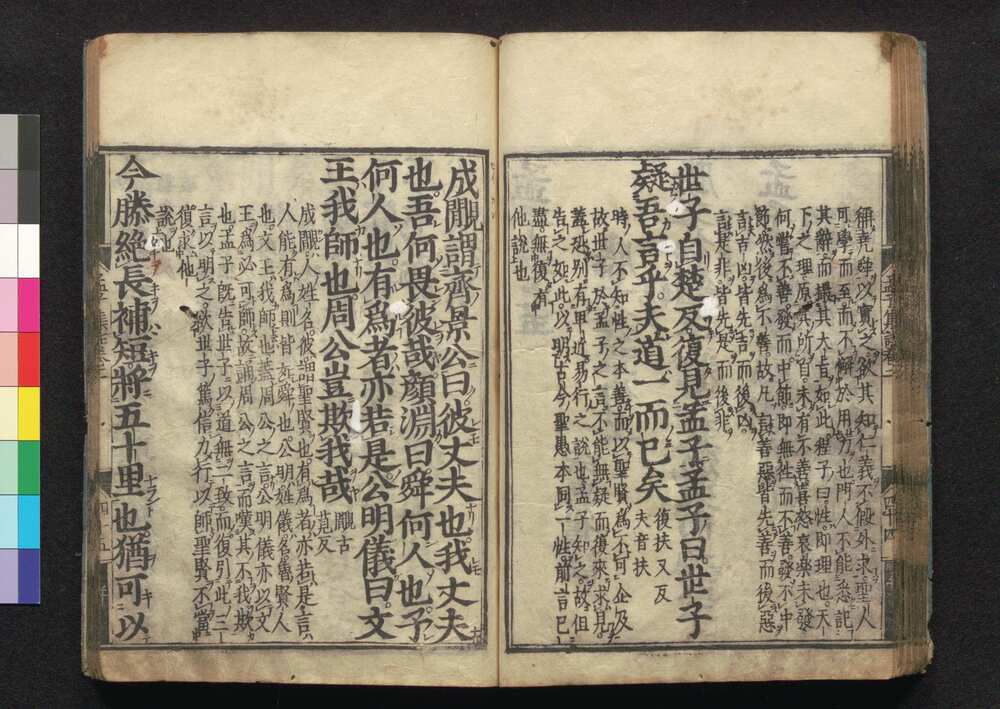 稱堯舜以實之欲其知仁義不假外求聖人
可學而至而不懈於用力也所人不能悉記
其辭而撮其大旨如此程子曰性即理也天
下之理原其所自未有不善喜怒哀樂未發
何嘗不善發而中節即無往而不善發不中
節然後爲不善故凡言善惡皆先善而後惡
言吉凶皆先吉而後凶
言是非皆先是而後非
世子自楚反復見孟子孟子曰世子
疑吾言乎夫道一而已矣
復扶又反
夫音扶
時人不知性之本善而以聖賢爲不可企及
故世子於孟子之言不能無疑而復來求見
蓋恐別有卑近易行之說也孟子知之故但
告之如此以明古今聖愚本同一性前言已
盡無復有
他說也
成覸謂齊景公曰彼丈夫也我丈夫
也吾何畏彼哉顏淵曰舜何人也予
何人也有爲者亦若是公明儀曰文
王我師也周公豈欺我哉
覸古
莧反
成覸人姓名彼謂聖賢也有爲者亦若是言
人能有爲則皆如舜也公明姓儀名魯賢人
也文王我師也蓋周公之言公明儀亦以文
王爲必可師故誦周公之言而嘆其不我欺
也孟子既告世子以道無二致而復引此三
言以明之欲世子篤信力行以師聖賢不當
復求他
說也
今滕絕長補短將五十里也猶可以